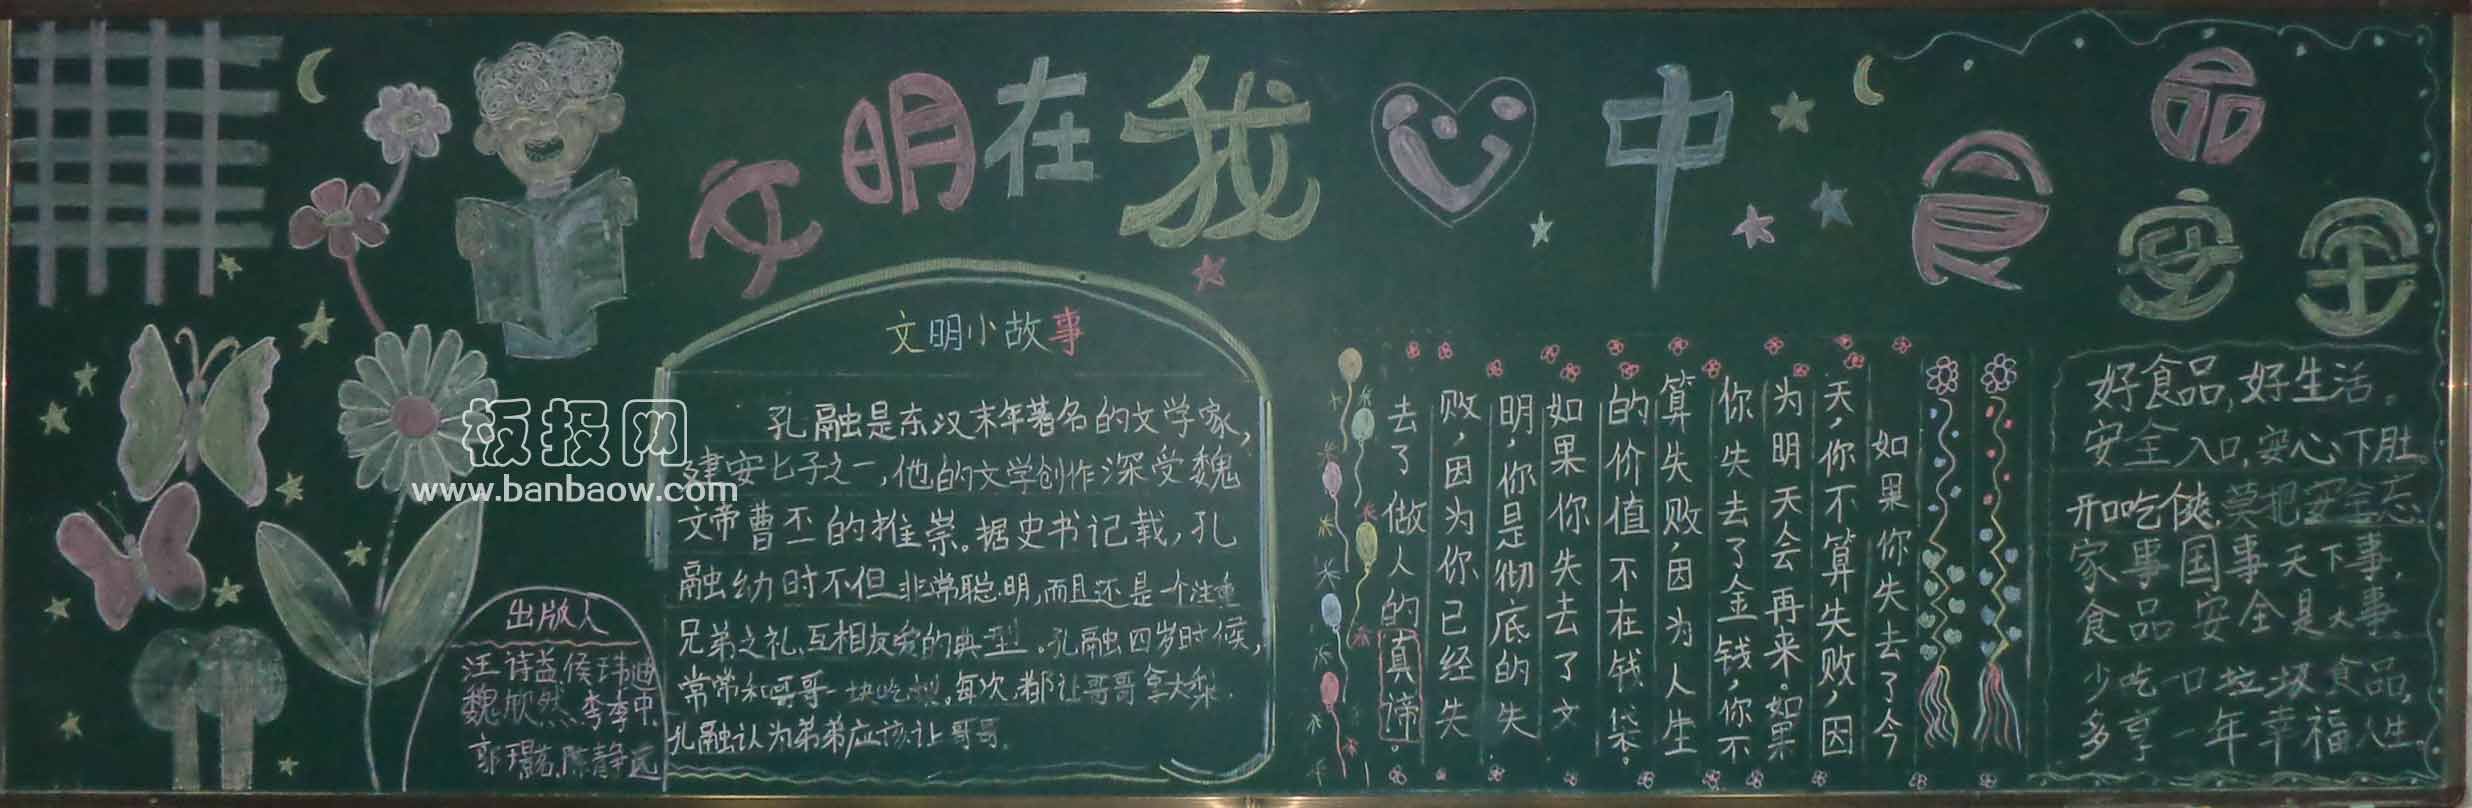 文明在我心中
食品安全
文明小故事
孔融是东汉末年著名的文学家,
建安七子之一,他的文学创作深受魏
文帝曹丕的推崇。据史书记载,孔
融幼时不但非常聪明,而且还是一个注重
兄弟之礼、互相友爱的典型。孔融四岁时候,
常常和哥哥一块吃梨。每次,都让哥哥拿大梨.
孔融认为弟弟应该让哥哥.
出版人
汪诗益侯玮迪
魏欣然 李李中
陈静远
如果你失去了今
天,你不算失败,因
为明天会再来。如果
你失去了金钱,你不
算失败,因为人生
的价值不在钱袋。
如果你失去了文
明,你是彻底的失
败,因为你已经失
去了做人的真谛。
好食品,好生活。
安全入口,安心下肚.
开口吃个爽,莫把安全忘.
家事国事天下事,
食品安全是大事.
少吃一口垃圾食品,
多享一年幸福人生.
板报网
www.banbaow.com